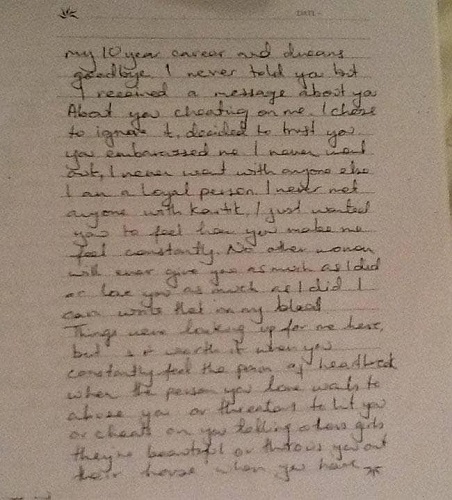 my 10 year career and dreams
goodbye. I never told you but
I received a message about you
About you cheating on me. I chose
to ignore it, decided to trust you
you embarassed me. I never went
out, I never went with anyone else
I am a Loyal person. I never met
anyone with Kartik, I just wanted
you to feel how you make me
feel constantly. No other woman
will ever give you as much as I did
or love you as much as I did. I
can write that in my blood
Things were looking up for me here,
but is it worth it when you
constantly feel the pain of heartbreak
when the person you love wants to
abuse you or threatens to hit you
or cheats on you telling other girls
they're beautiful or throws you out
their house when you have